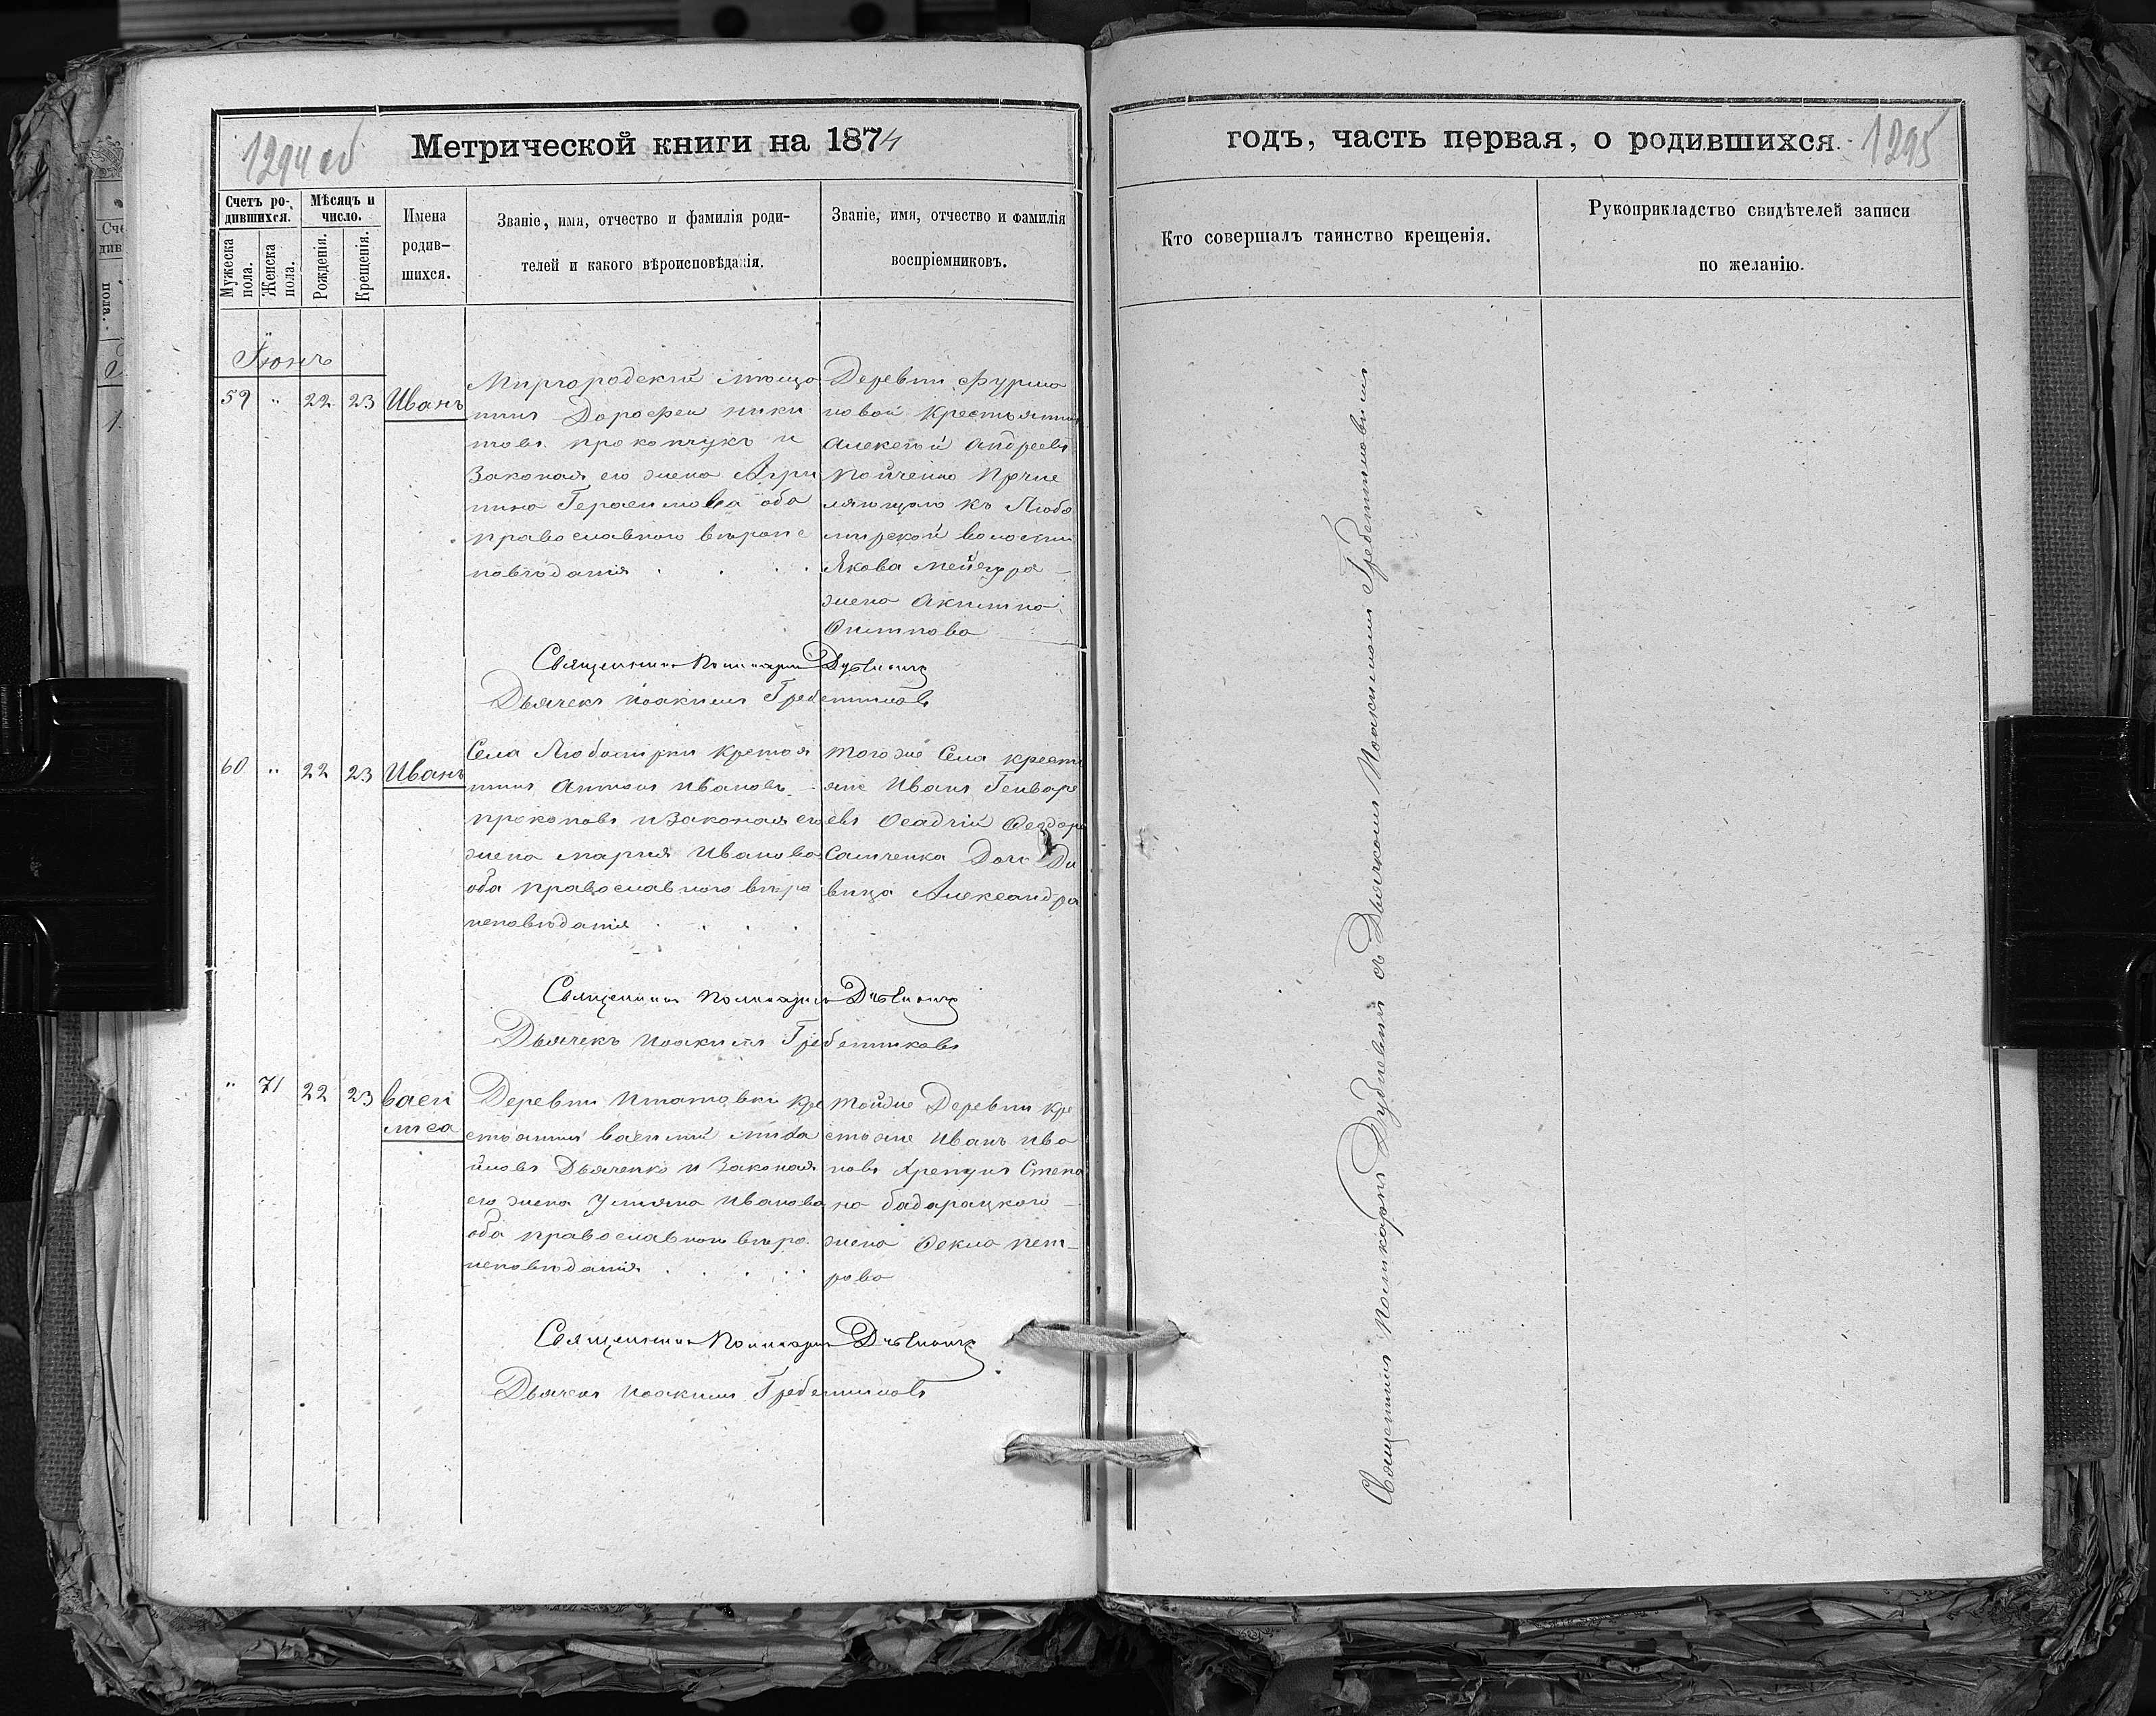 1294 об
Метрической книги на 1874
Счетъ ро-
дившихся.
Мѣсяцъ и
число.
Мужеска
пола.
Женска
пола.
Рожденія.
Крещенія.
Имена
родив-
шихся.
Званіе, имя, отчество и фамилія роди-
телей и какого вѣроисповѣданія.
Званіе, имя, отчество и фамилія
воспріемниковъ.
Іюнь
59 " 22 23 Иванъ
Миргородскій мѣща
нинъ Дорофей Ники
товъ Прокопчукъ и
Законая его жена Агри
пина Герасимова оба
православного вѣроис
повѣданія
Деревни Фурма
новой Крестьянинъ
Алексѣй Андреевъ
мляющаго къ Любо
мирской волости
Якова
жена Акилина
Осипова
Священникъ Поликарпъ
Дьячекъ Иоакимъ Гребенниковъ
60 " 22 23 Иванъ
Села Любомирки Крестья
нинъ Антонъ Ивановъ
Прокоповъ и Законая его
жена Мария Иванова
оба православного вѣро
исповѣданія
того же Села крестъ
яне Иванъ Генваре
евъ Осадчій Феодора
Самченка Дочь Дѣ
вица Александра
Священникъ Поликарпъ
Дьячекъ Иоакимъ Гребенниковъ
" 71 22 23 Васи
лиса
Деревни Игнатовки кре
стьянинъ Василий Миха
йловъ Дьяченко и Законая
его жена Ульяна Иванова
оба православного вѣро
исповѣданія
тойже Деревни кре
стьяне Иванъ Ива
новъ Степа
на Бадарацкого
жена Фекла Пет-
рова
Священникъ Поликарпъ
Дьячекъ Иоакимъ Гребенниковъ
годъ, часть первая, о родившихся.
1295
Кто совершалъ таинство крещенія.
Рукоприкладство свидѣтелей записи
по желанію.
Священникъ Поликарпъ Дублевичъ съ Дьячкомъ Иоакимомъ Гребенниковымъ